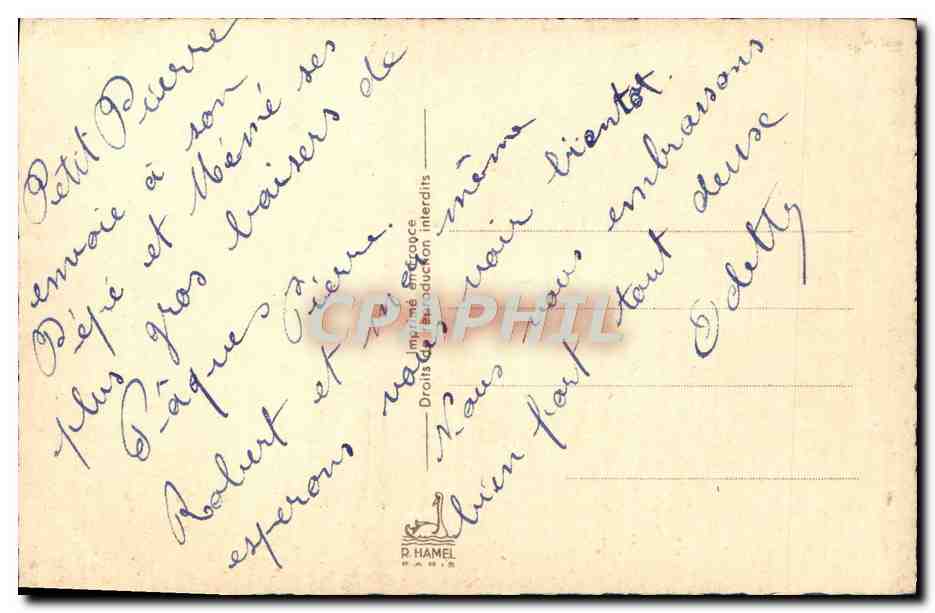 Petit Pierre
envoie à son
Pépé et Mémé ses
plus gros baisers de
Pâques Pierre.
Robert et moi même
esperons vous voir bientot.
Nous vous embrassons
bien fort tout deuse
Odette
Imprimé en France
Droits de reproduction interdits
CPAPHIL
R. HAMEL
PARIS